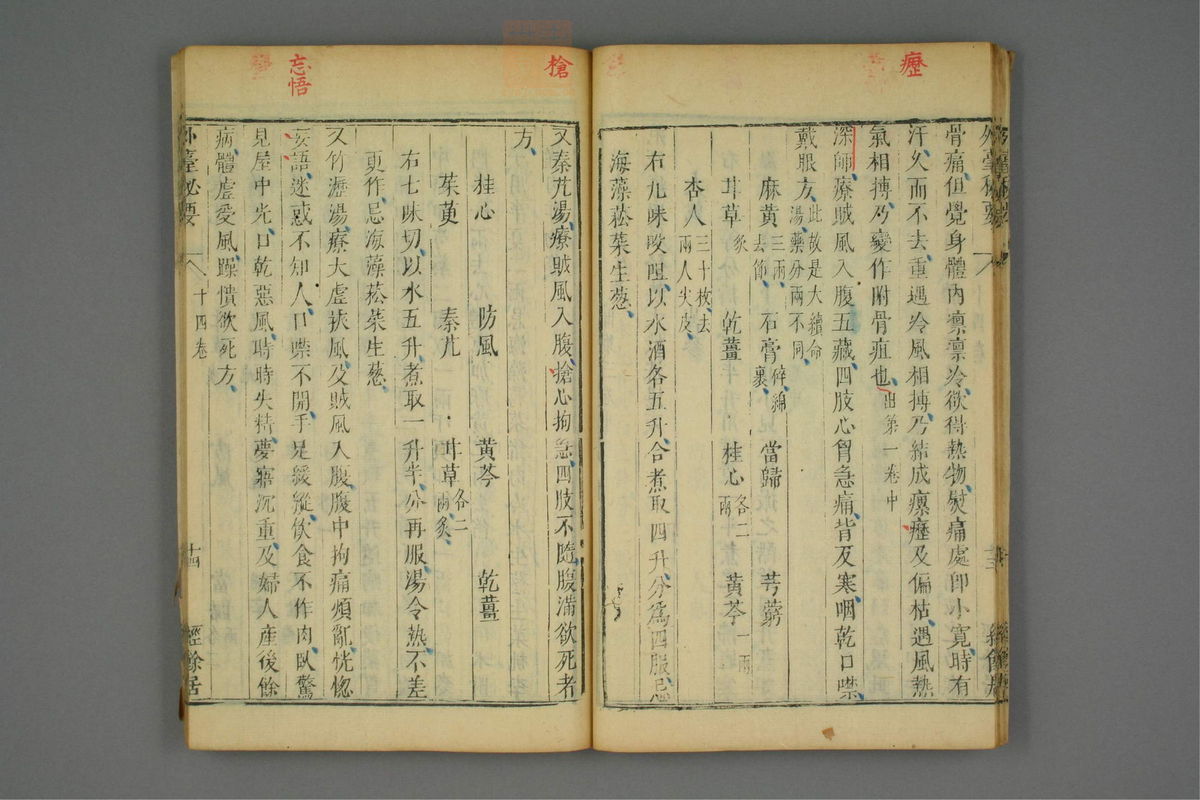 癧
骨痛但覺身體内凛凛冷欲得熱物熨痛處即小寛時有
汗久而不去重遇冷風相搏乃結成瘰癧及偏枯遇風熱
氣相搏乃變作附骨疽也出第一卷中
深師療賊風入腹五藏四肢心胷急痛背反寒咽乾口噤
戴眼方此故是大續命湯藥分兩不同
麻黄三兩去節 石膏碎綿裹 當歸 芎藭
甘草炙 乾薑 桂心各二兩 黄芩一兩
杏人三十枚去兩人尖皮
右九味㕮咀以水酒各五升合煮取四升分爲四服忌
海藻菘菜生葱
槍
又秦艽湯療賊風入腹搶心拘急四肢不隨腹滿欲死者
方
桂心 防風 黄芩 乾薑
茱萸 秦艽 甘草各二兩炙
右七味切以水五升煮取一升半分再服湯令熱不差
更作忌海藻菘菜生葱
又竹瀝湯療大虚挾風及賊風入腹腹中拘痛煩亂恍惚
忘悟
妄語迷惑不知人口噤不開手足緩縱飲食不作肉臥驚
見屋中光口乾惡風時時失精夢寤沉重及婦人産後餘
病體虚受風躁憒欲死方
外臺秘要
十四卷
十四
經餘居